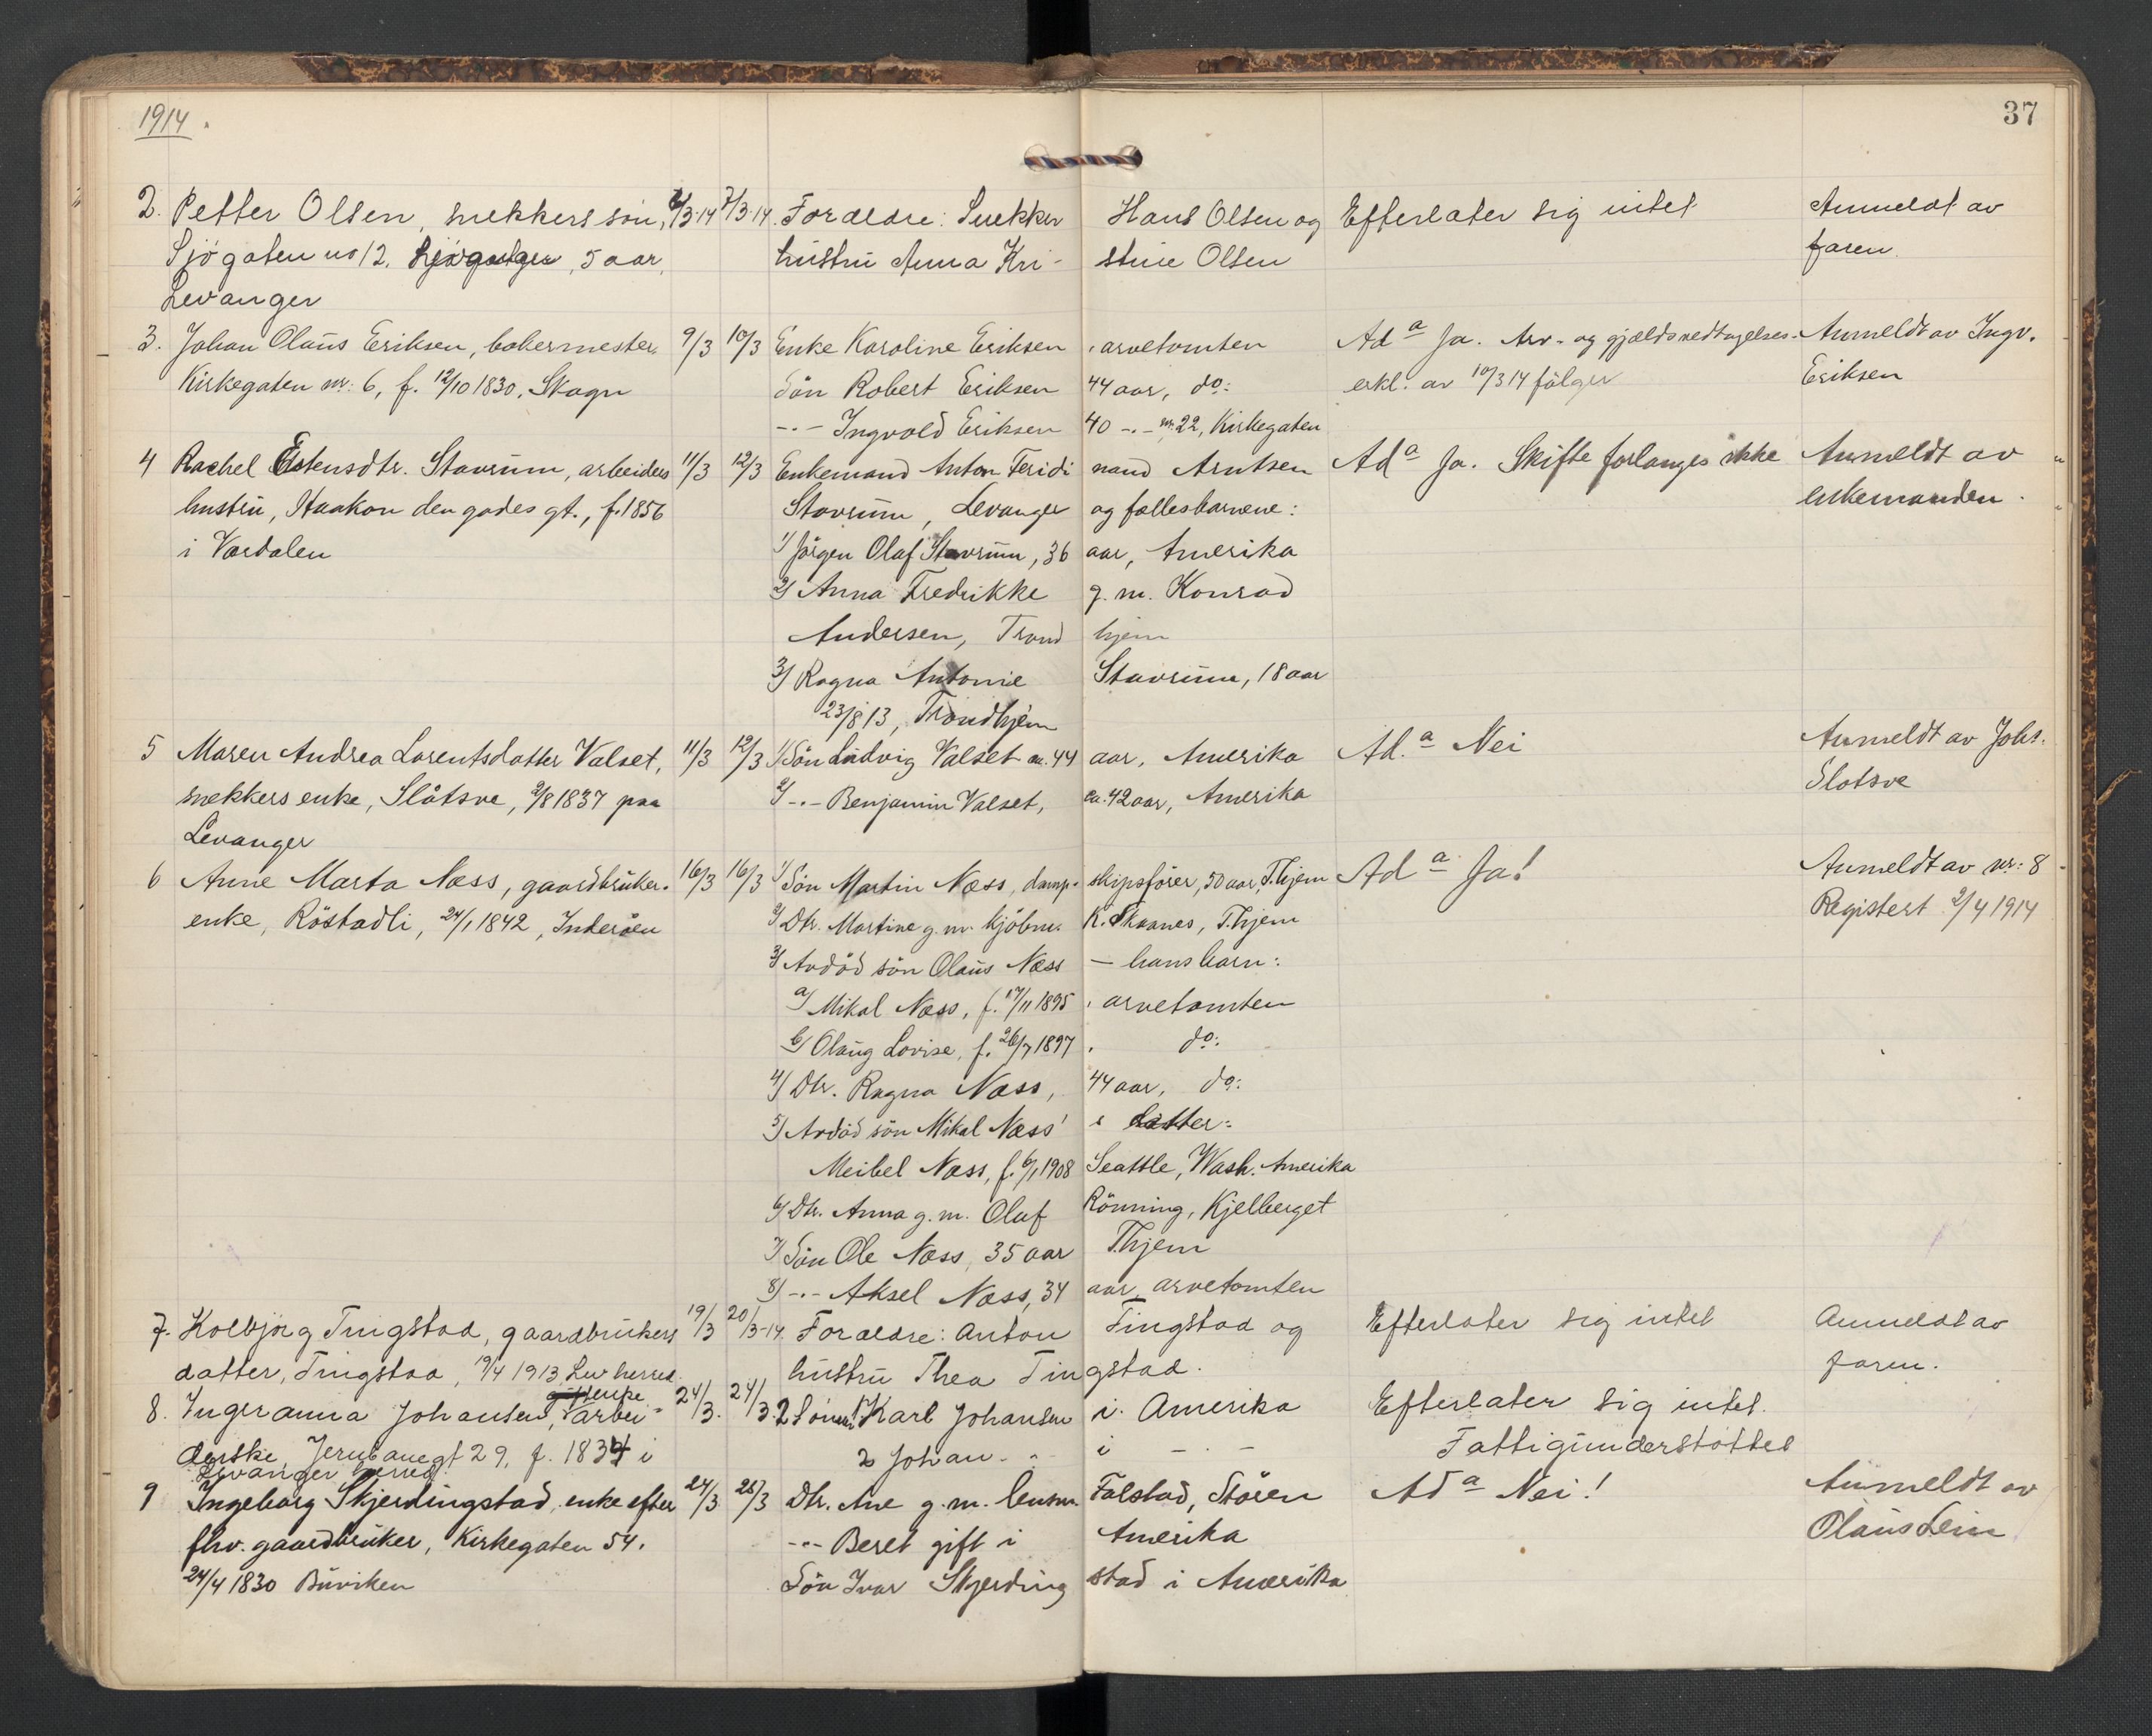 1914.
37
2. Petter Olsen, snekkers sön, 6/3-14 7/3-14. Foreldre: Snekker Hans Olsen og Efterlater sig intet Anmeldt av
Sjögaten no 12, 5 aar, hustru Anna Kristine Olsen faren.
Levanger
3. Johan Olaus Eriksen, bakermester, 9/3 10/3 Enke Karoline Eriksen, arvetomten Ad a Ja. Arv- og gjældsvedtagelses- Anmeldt av Ingv.
Kirkegaten nr: 6, f. 12/10 1830, Skogn Sön Robert Eriksen 44 aar, do: erkl. av 10/3 14 følger Eriksen
-"- Ingvald Eriksen 40 -"- nr. 22, Kirkegaten
4 Rachel Estensdtr. Stavrum, arbeiders 11/3 12/3 Enkemand Anton Feridinand Arntsen Ad a Ja. Skifte forlanges ikke Anmeldt av
hustru, Haakon den godes gt., f. 1856 Stavrum, Levanger og fællesbarnene: enkemanden.
i Værdalen 1/ Jörgen Olaf Stavrum, 36 aar, Amerika
2/ Anna Fredrikke g. m. Konrad
Andersen, Trondhjem
3/ Ragna Antonie Stavrum, 18 aar
23/8 13, Trondhjem
5 Maren Andrea Larentsdatter Valset, 11/3 12/3 1/ Sön Ludvig Valset ca. 44 aar, Amerika Ad. a Nei Anmeldt av Johs.
snekkers enke, Slåtsve, 2/8 1837 paa 2/ -"- Benjamin Valset, ca. 42 aar, Amerika Slotsve
Levanger
6 Anne Marta Næss, gaardbruker- 16/3 16/3 1/ Sön Martin Næss, dampskipsförer, 50 aar, T.hjem Ad a Ja! Anmeldt av nr: 8
enke, Röstadli, 24/1 1842, Inderöen 2/ Dtr. Martine g. m. kjöbm. K. Skaanes, T.hjem Registert 2/4 1914
3/ Avdöd sön Olaus Næss – hans barn:
a/ Mikal Næss, f. 17/11 1895, arvetomten
b/ Olaug Lovise, f. 26/7 1897, do:
4/ Dtr. Ragna Næss, 44 aar, do:
5/ Avdöd sön Mikal Næss' datter:
Meibel Næss, f. 6/1 1908 Seattle, Wash. Amerika
6/ Dtr. Anna g. m. Olaf Rönning, Kjelberget
7/ Sön Ole Næss, 35 aar T.hjem
8/ -"- Aksel Næss, 34 aar, arvetomten
7. Kolbjörg Tingstad, gaardbrukers 19/3 20/3-14. Foreldre: Anton Tingstad og Efterlater sig intet Anmeldt av
datter, Tingstad, 19/4 1913 Lev herred. hustru Thea Tingstad. faren.
enke
8. Ingeranna Johansen, arbei- 24/3. 24/3. 2 Sönner 1 Karl Johansen i Amerika Efterlater sig intet.
derske Jernbanegt 29, f. 1834 i 2 Johan -"- i -"- Fattigunderstöttet
Levanger herred
9 Ingeborg Skjerdingstad, enke efter 24/3 25/3 Dtr. Ane g. m. Falstad, Stören Ad a Nei! Anmeldt av
fhv. gaardbruker, Kirkegaten 54. -"- Beret gift i Amerika Olaus Lein
24/4 1830 Buviken Sön Ivar Skjerdingstad i Amerika